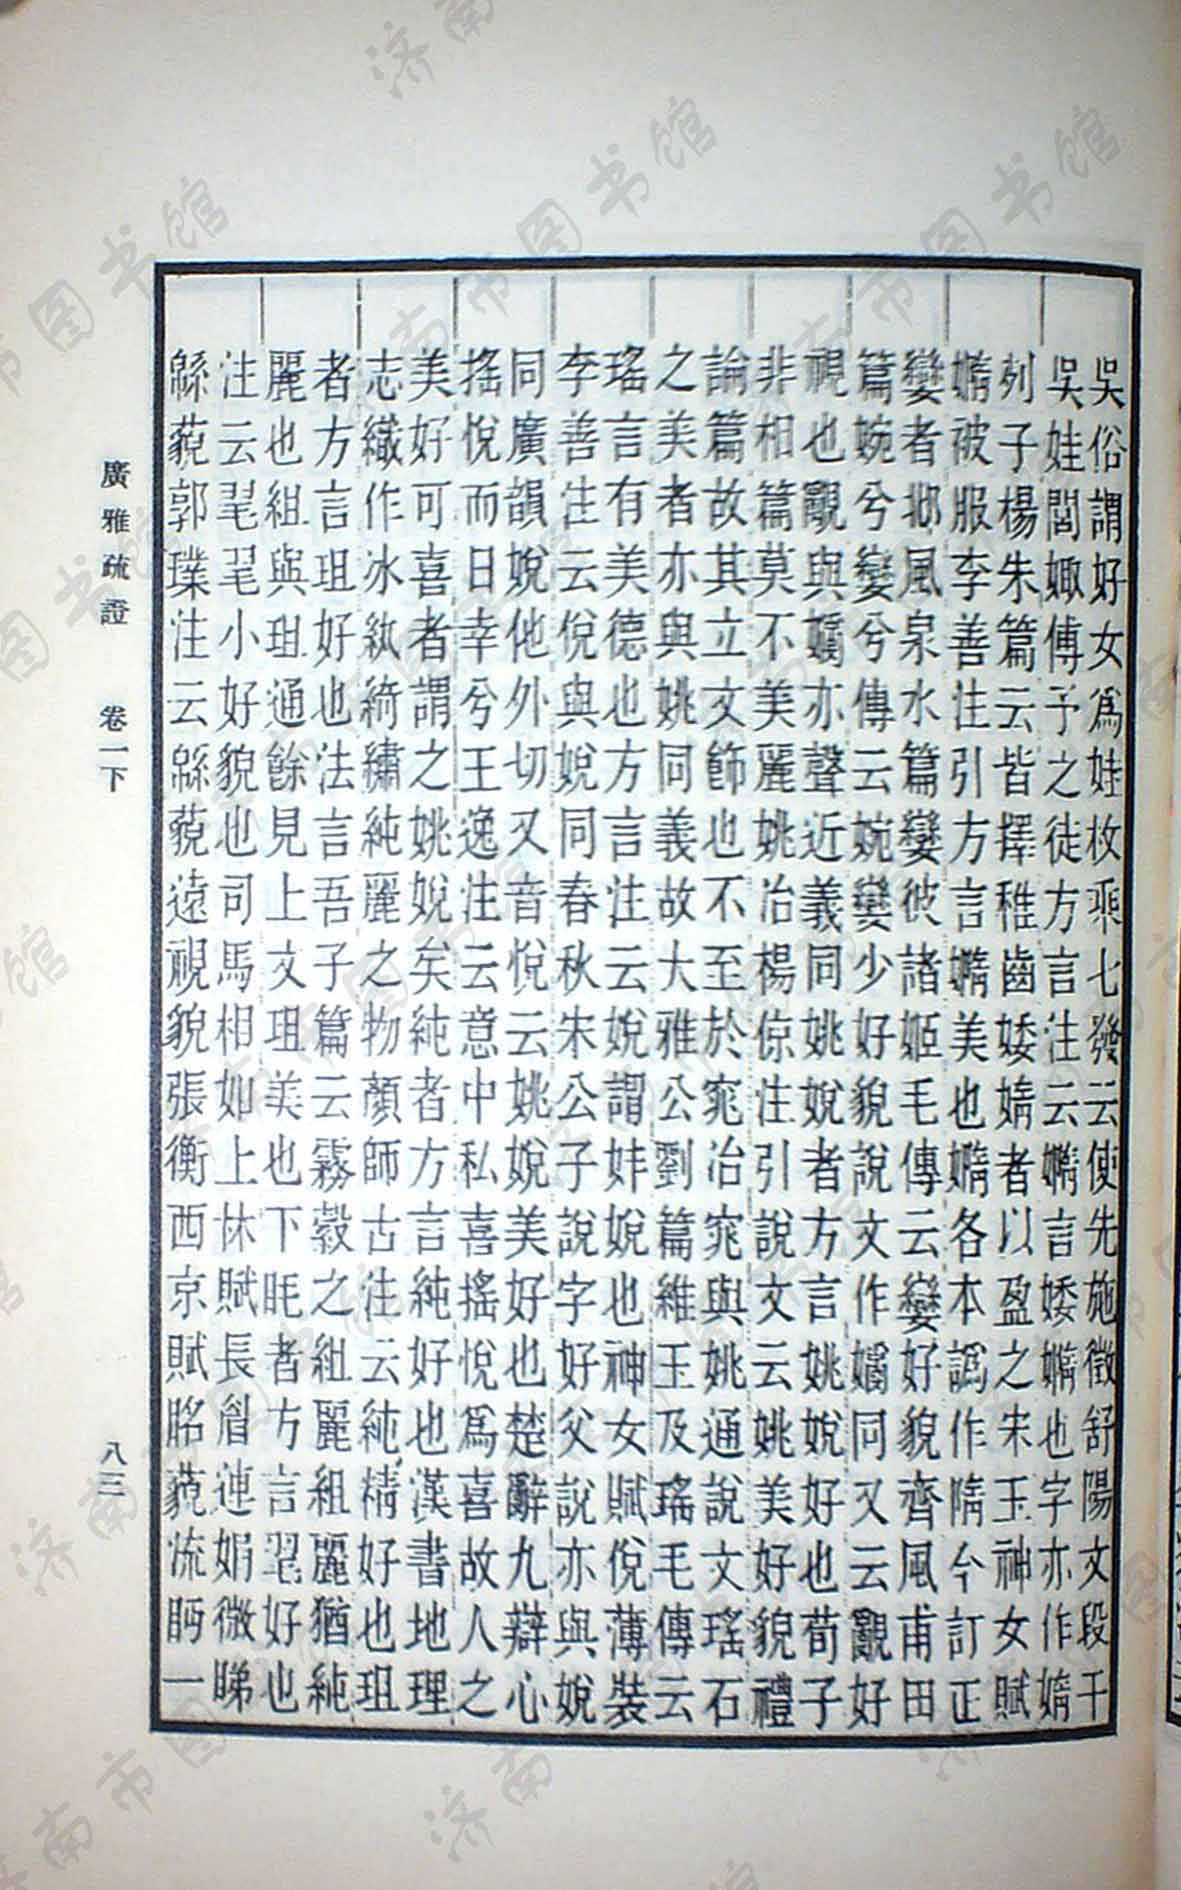 吳俗謂好女爲娃枚乘七發云使先施徵舒陽文段干
吳娃閭娵傅予之徒方言注云嫷言婑嫷也字亦作媠
列子楊朱篇云皆擇稚齒婑媠者以盈之宋玉神女賦
嫷被服李善注引方言嫷美也嫷各本譌作隋今訂正
孌者邶風泉水篇孌彼諸姬毛傳云孌好貌齊風甫田
篇婉兮孌兮傳云婉孌少好貌說文作㜻同又云覶好
視也覶與㜻亦聲近義同姚娧者方言姚娧好也荀子
非相篇莫不美麗姚冶楊倞注引說文云姚美好貌禮
論篇故其立文飾也不至於窕冶窕與姚通說文瑤石
之美者亦與姚同義故大雅公劉篇維玉及瑤毛傳云
瑤言有美德也方言注云娧謂妦娧也神女賦侻薄裝
李善注云侻與娧同春秋宋公子說字好父說亦與娧
同廣韻娧他外切又音悅云姚娧美好也楚辭九辯心
搖悅而日幸兮王逸注云意中私喜搖悅爲喜故人之
美好可喜者謂之姚娧矣純者方言純好也漢書地理
志織作冰紈綺繡純麗之物顏師古注云純精好也珇
者方言珇好也法言吾子篇云霧縠之組麗組麗猶純
麗也組與珇通餘見上文珇美也下眊者方言毣好也
注云毣毣小好貌也司馬相如上林賦長眉連娟微睇
緜藐郭璞注云緜藐遠視貌張衡西京賦眳藐流眄一
廣雅疏證 卷一下 八三
济南市图书馆